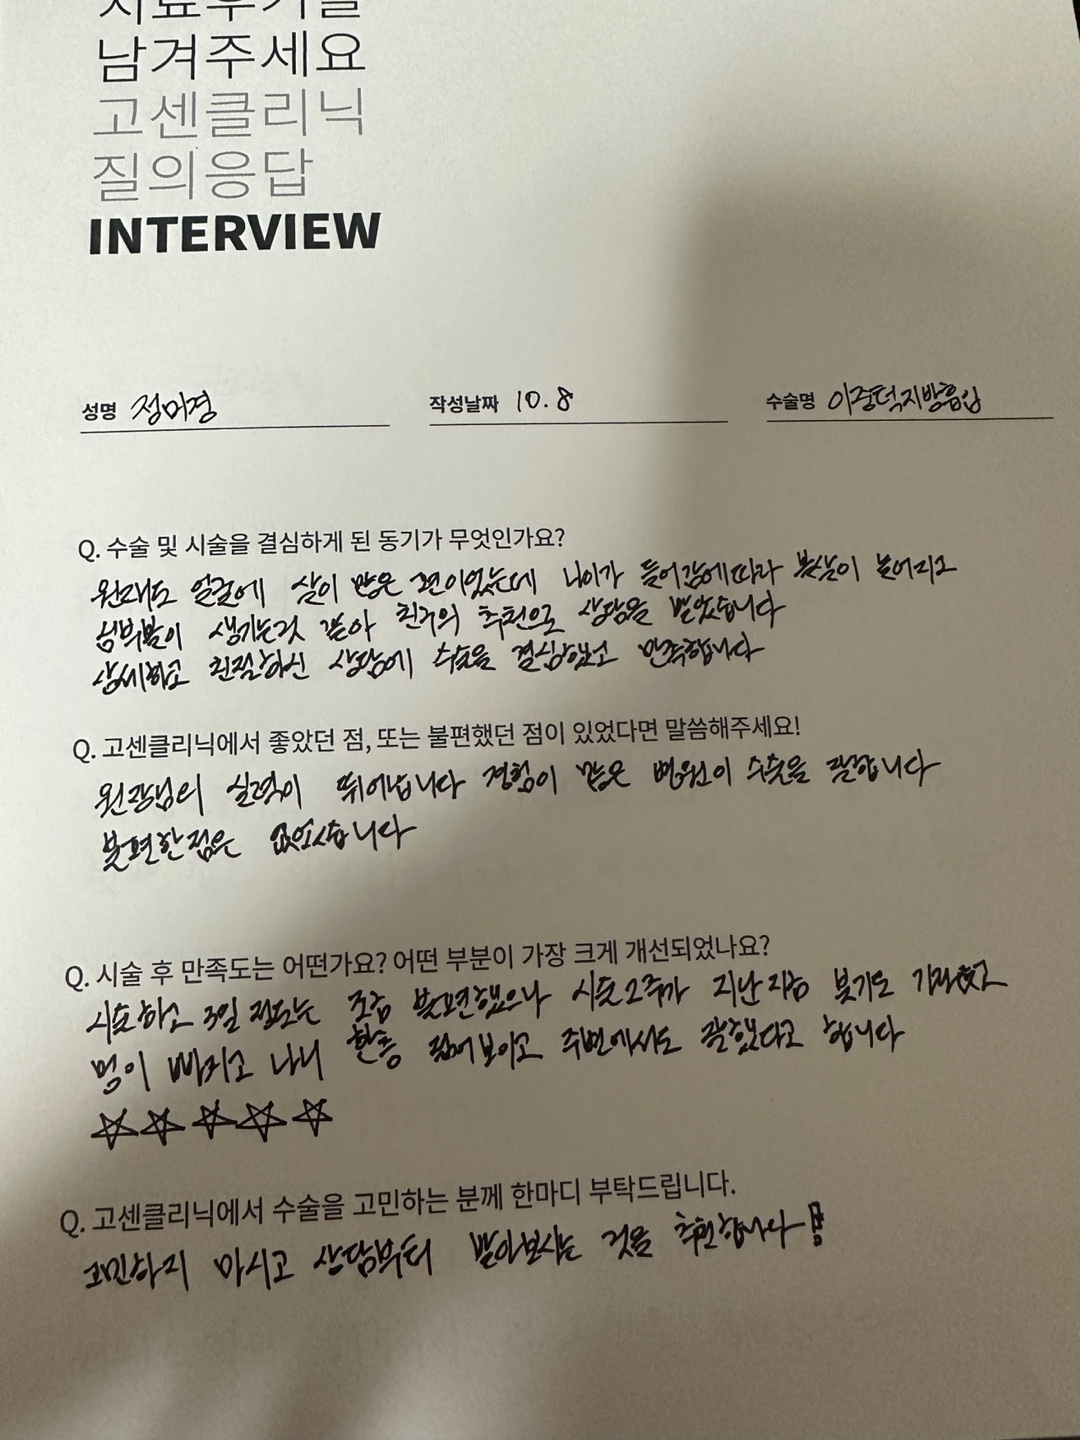 치료후기를
남겨주세요
고센클리닉
질의응답
INTERVIEW
성명 정미경 작성날짜 10.8 수술명 이중턱지방흡입
Q. 수술 및 시술을 결심하게 된 동기가 무엇인가요?
원래도 얼굴에 살이 많은 편이었는데 나이가 들어감에따라 볼살이 늘어지고
심부볼이 생기는것 같아 친구의 추천으로 상담을 받았습니다
상세하고 친절하신 상담에 수술을 결심했고 만족합니다
Q. 고센클리닉에서 좋았던 점, 또는 불편했던 점이 있었다면 말씀해주세요!
원장님의 실력이 뛰어납니다 경험이 많은 병원이 수술을 잘합니다
불편한점은 없었습니다
Q. 시술 후 만족도는 어떤가요? 어떤 부분이 가장 크게 개선되었나요?
시술하고 3일 정도는 조금 불편했으나 시술2주가 지난지금 붓기도
멍이 빠지고 나니 한층 젊어보이고 주변에서도 잘했다고 합니다
☆☆☆☆☆
Q. 고센클리닉에서 수술을 고민하는 분께 한마디 부탁드립니다.
고민하지 마시고 상담부터 받아보시는 것을 추천합니다!!